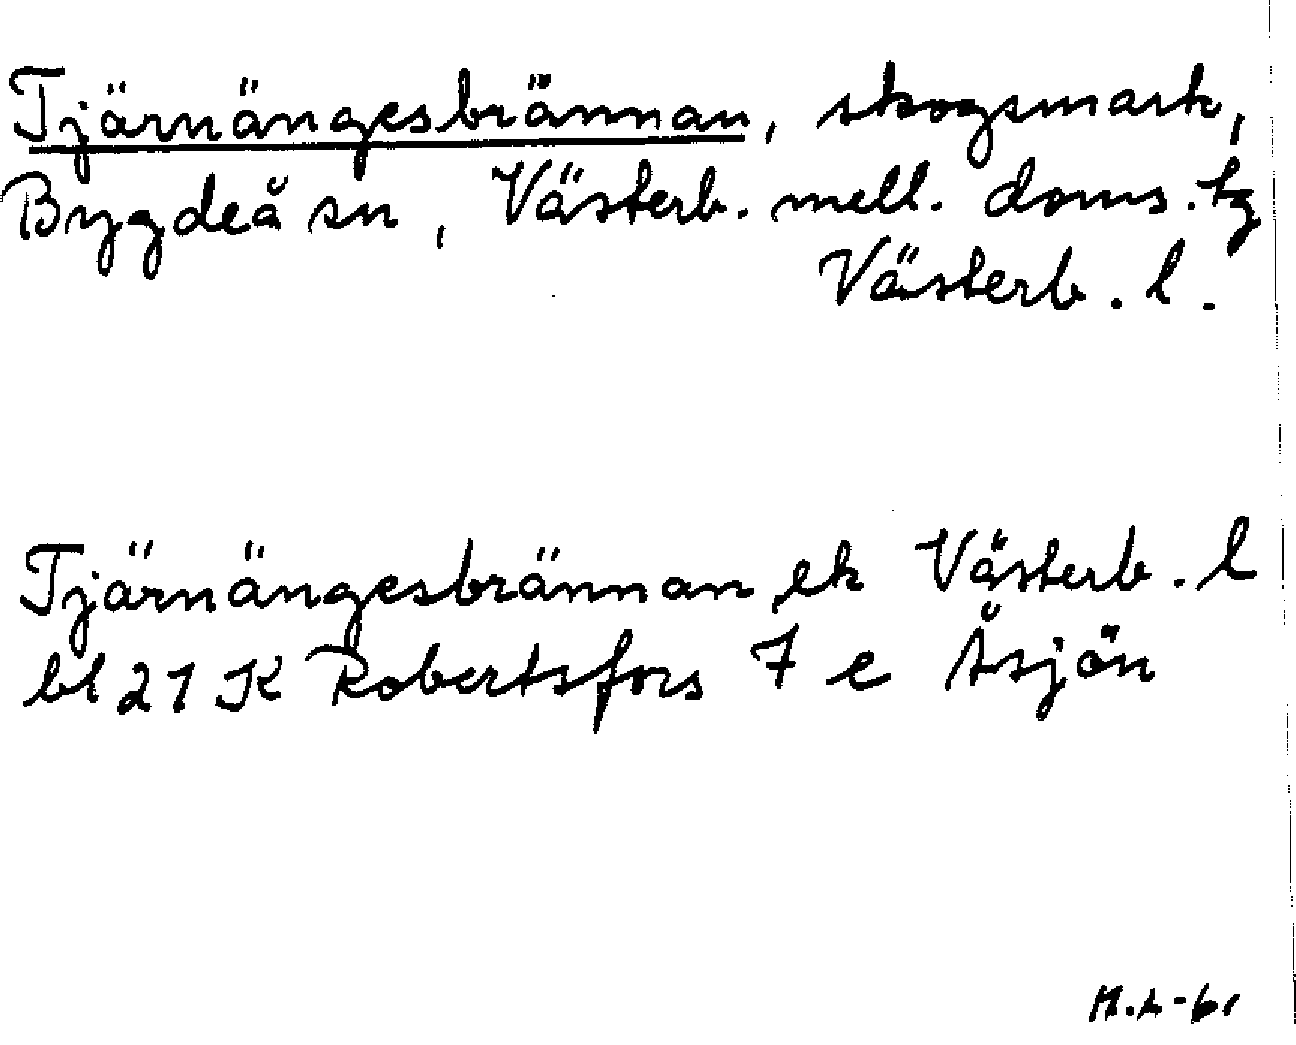 Tjärnängesbrännan, skogsmark,
Bygdeå sn, Västerb. mell. doms.tg
Västerb. l.
Tjärnängesbrännan, ek Västerb. l
bl 21 K Robertsfors 7 e Åsjön